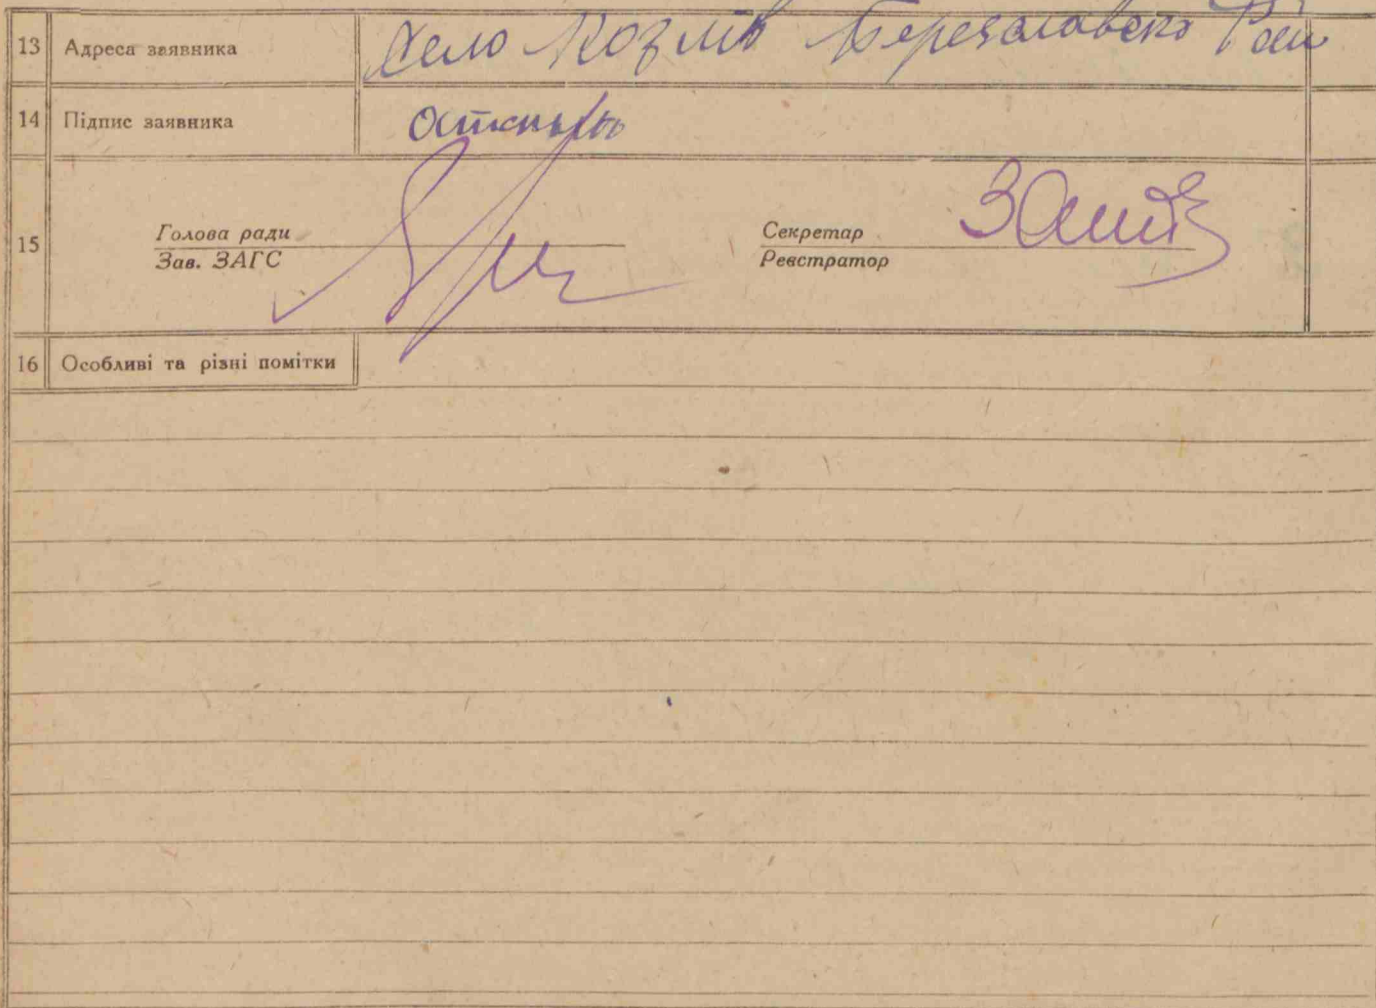 13 Адреса заявника село Козлів Переяславсько Рай
14 Підпис заявника
15 Голова ради
Зав. ЗАГС
Секретар
Реєстратор
16 Особливі та різні помітки